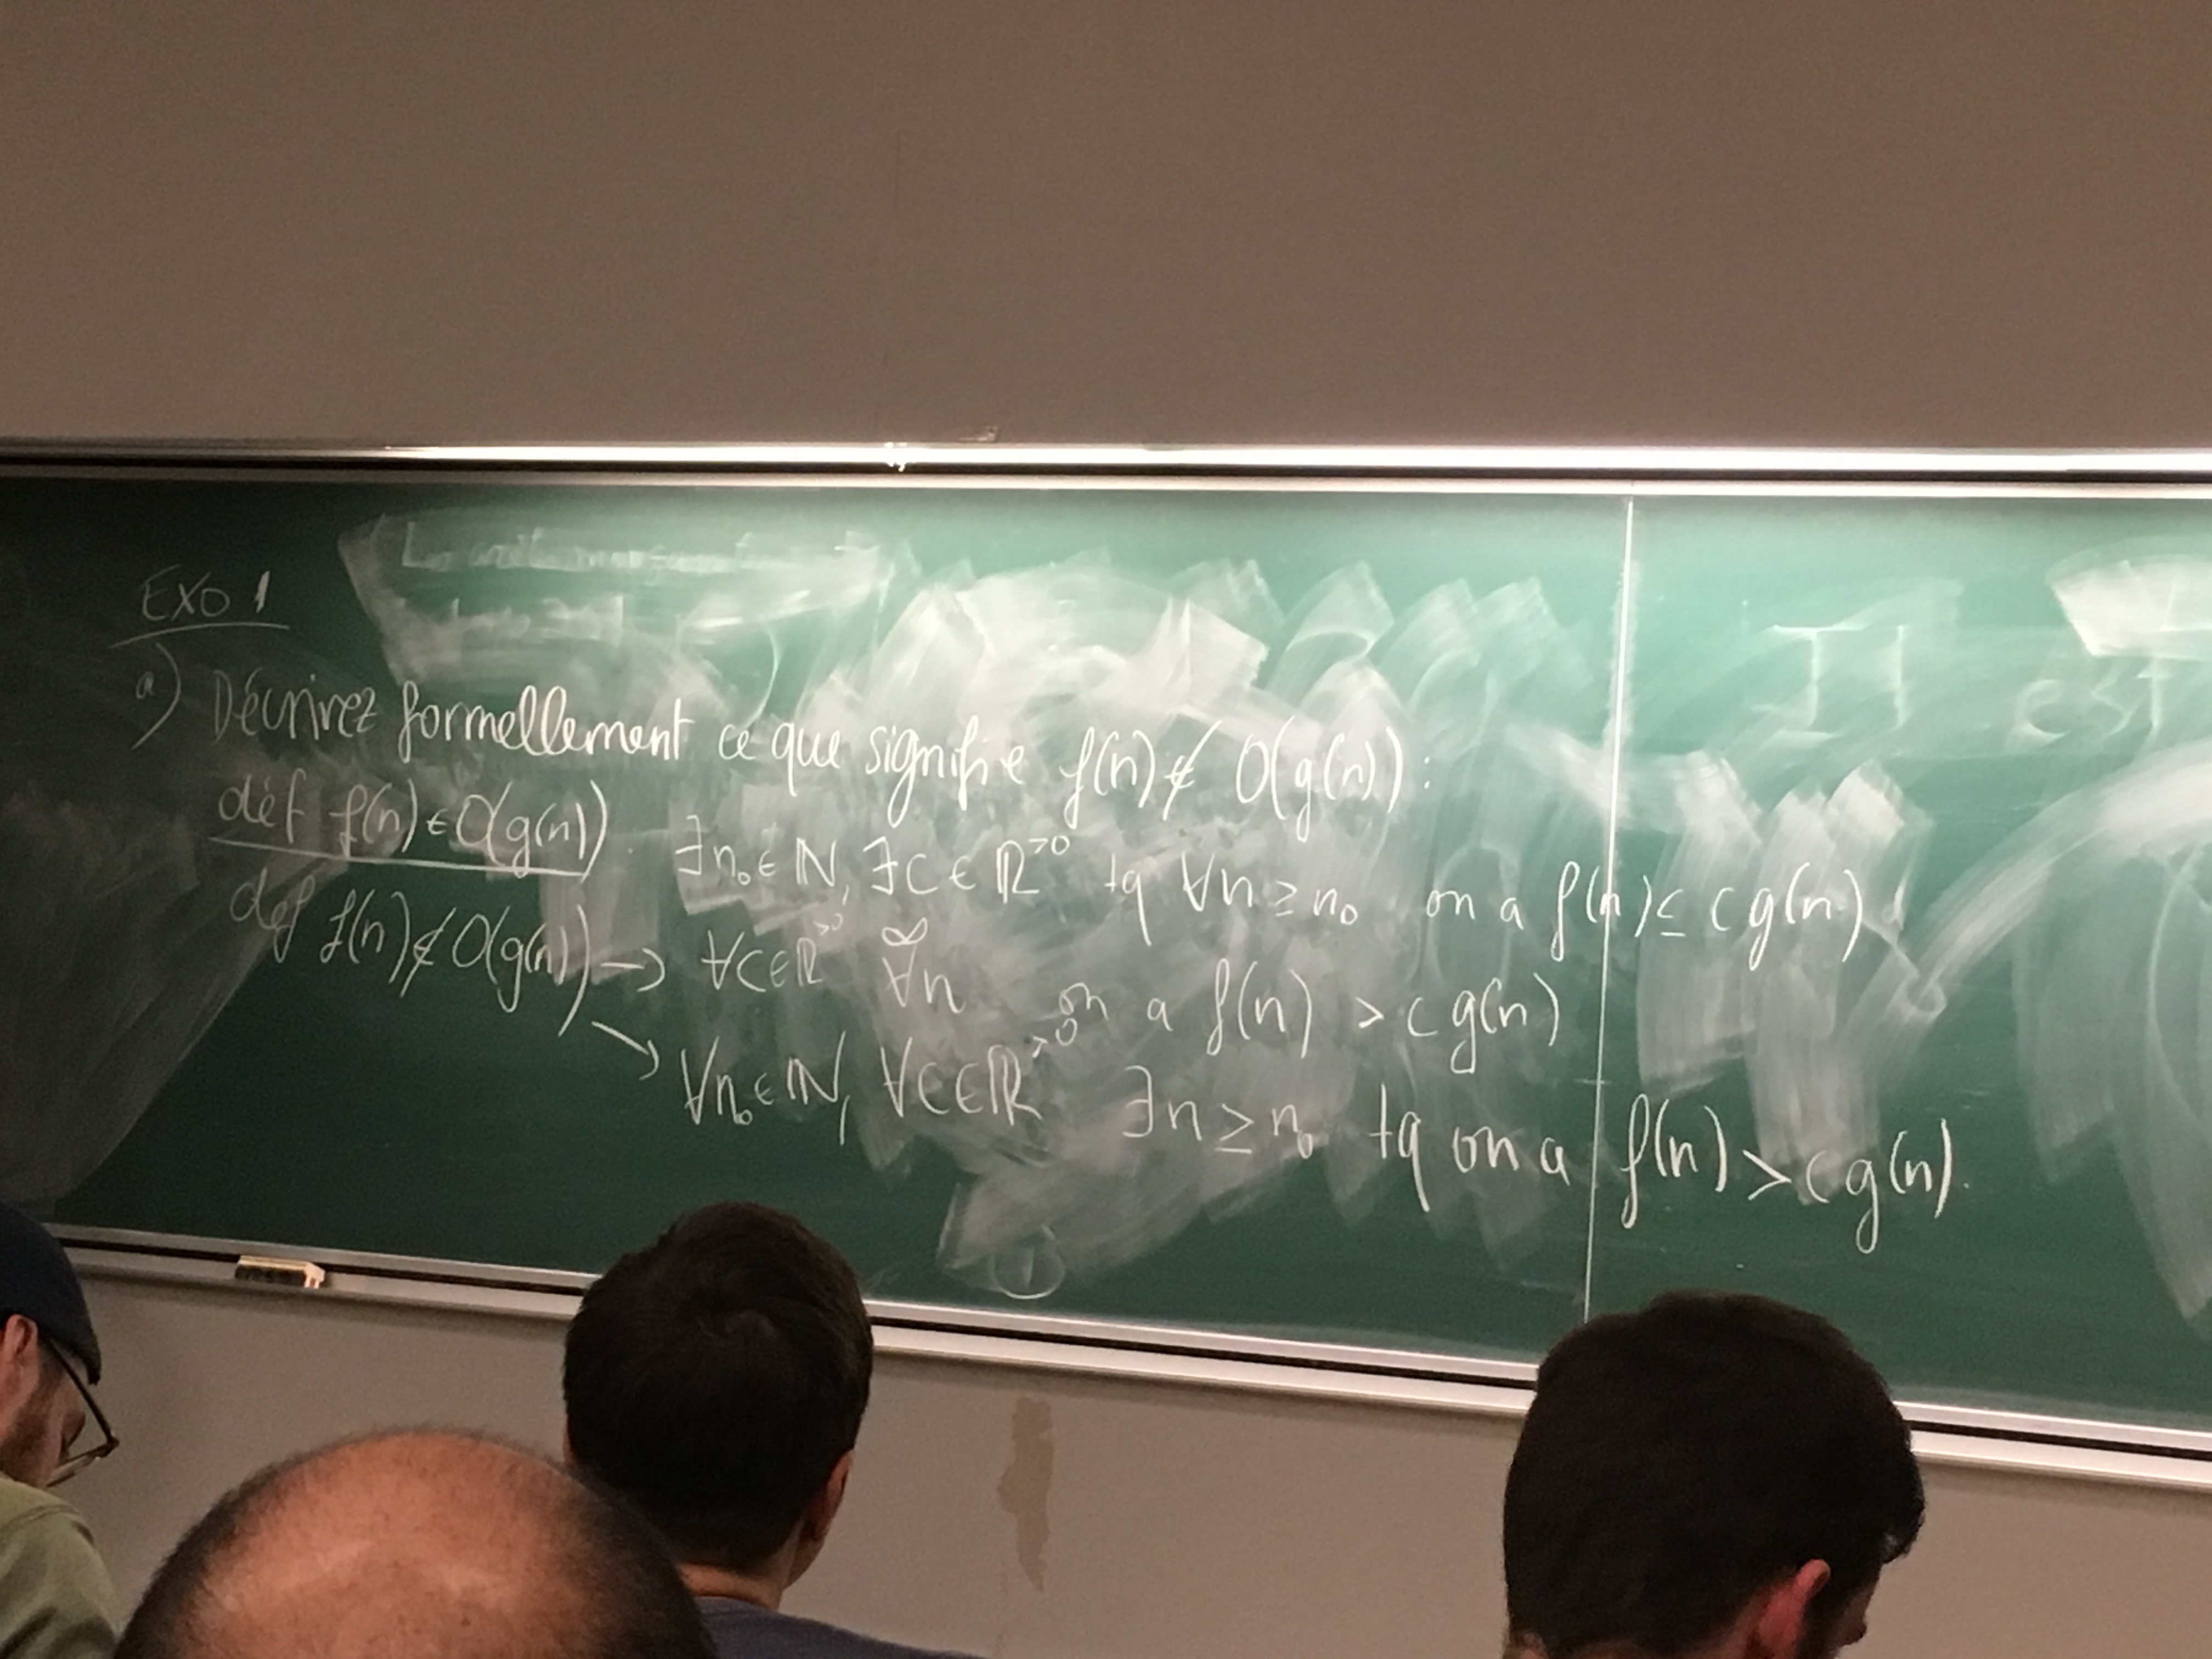 EXO 1
a) Décrivez formellement ce que signifie f(n) ∉ O(g(n)) :
déf f(n) ∈ O(g(n)) . ∃n₀ ∈ ℕ, ∃c ∈ ℝ^>0 tq ∀n ≥ n₀ on a f(n) ≤ c g(n)
def f(n) ∉ O(g(n)) → ∀c ∈ ℝ^>0 ∀^∞ n on a f(n) > c g(n)
↘ ∀n₀ ∈ ℕ, ∀c ∈ ℝ^>0 ∃n ≥ n₀ tq on a f(n) > c g(n).